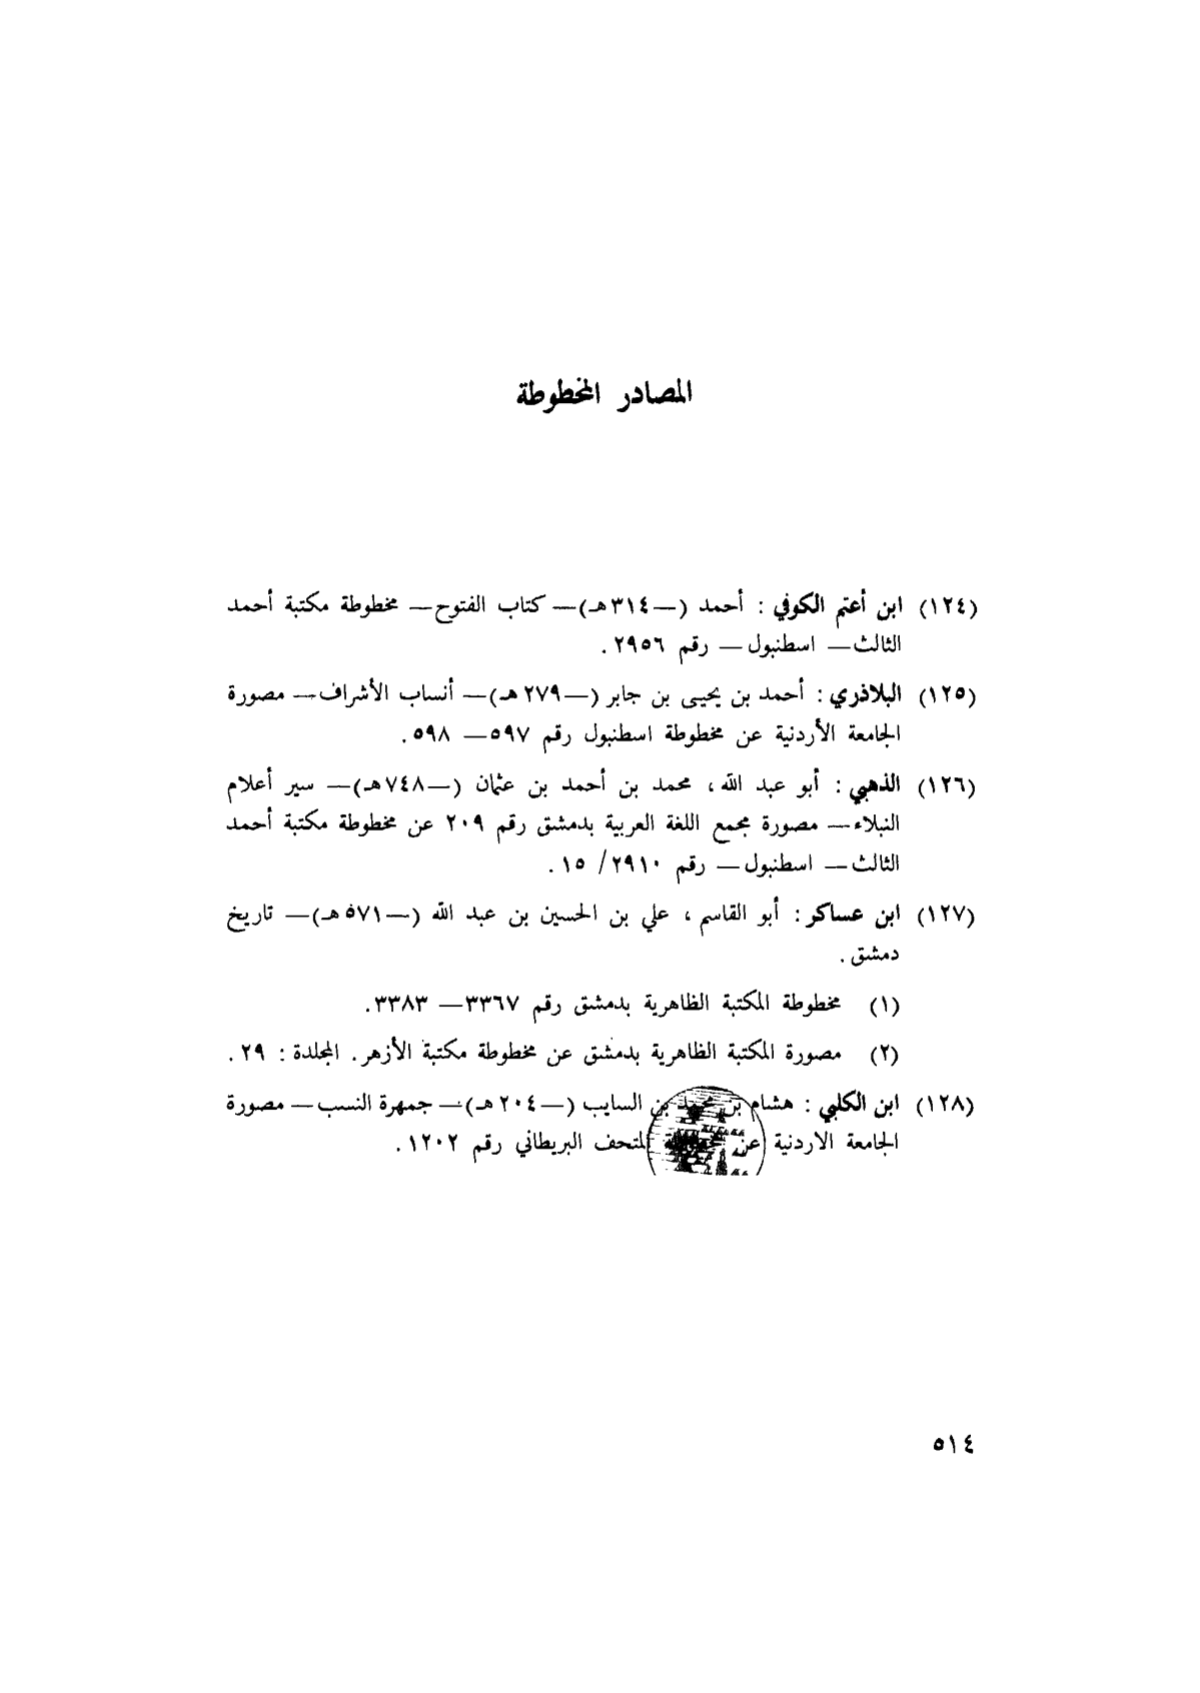 المصادر المخطوطة
(١٢٤) ابن أعثم الكوفي : أحمد (—٣١٤هـ)— كتاب الفتوح— مخطوطة مكتبة أحمد
الثالث— اسطنبول — رقم ٢٩٥٦ .
(١٢٥) البلاذري : أحمد بن يحيى بن جابر (—٢٧٩ هـ)— أنساب الأشراف— مصورة
الجامعة الأردنية عن مخطوطة اسطنبول رقم ٥٩٧— ٥٩٨ .
(١٢٦) الذهبي : أبو عبد الله ، محمد بن أحمد بن عثمان (—٧٤٨هـ)— سير أعلام
النبلاء— مصورة مجمع اللغة العربية بدمشق رقم ٢٠٩ عن مخطوطة مكتبة أحمد
الثالث— اسطنبول — رقم ٢٩١٠/ ١٥ .
(١٢٧) ابن عساكر : أبو القاسم ، علي بن الحسين بن عبد الله (—٥٧١هـ)— تاريخ
دمشق .
(١) مخطوطة المكتبة الظاهرية بدمشق رقم ٣٣٦٧— ٣٣٨٣ .
(٢) مصورة المكتبة الظاهرية بدمشق عن مخطوطة مكتبة الأزهر . المجلدة : ٢٩ .
(١٢٨) ابن الكلبي : هشام بن محمد بن السايب (—٢٠٤ هـ)— جمهرة النسب— مصورة
الجامعة الاردنية عن المتحف البريطاني رقم ١٢٠٢ .
٥١٤